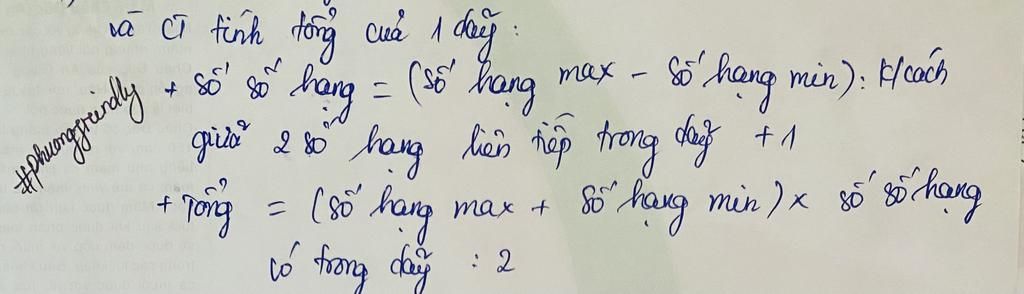 và CT tính tổng của 1 dãy:
+ Số số hạng = (Số hạng max - Số hạng min): k/cách
giữa 2 số hạng liên tiếp trong dãy + 1
+ Tổng = (Số hạng max + Số hạng min) x số số hạng
có trong dãy : 2
#phuongfriendly